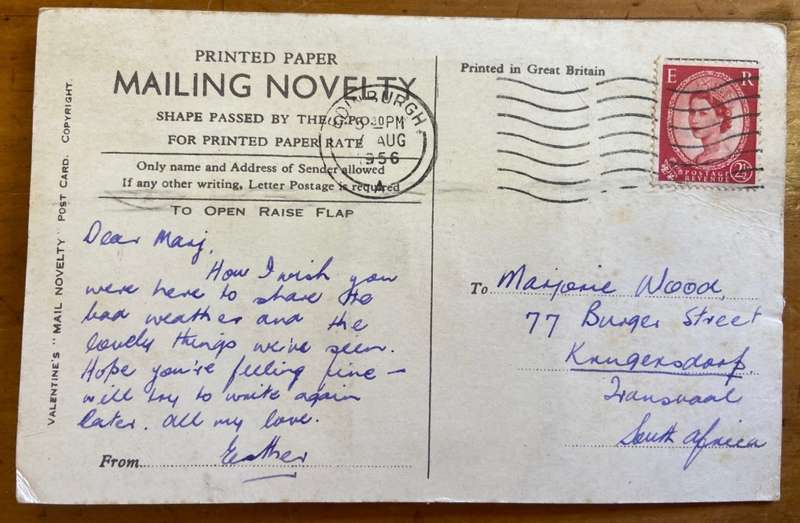 PRINTED PAPER
MAILING NOVELTY
SHAPE PASSED BY THE G.P.O.
FOR PRINTED PAPER RATE
Only name and Address of Sender allowed
If any other writing, Letter Postage is required
TO OPEN RAISE FLAP
VALENTINE'S "MAIL NOVELTY" POST CARD. COPYRIGHT.
Dear Marj,
How I wish you
were here to share the
bad weather and the
lovely things we've seen.
Hope you're feeling fine –
will try to write again
later. All my love.
From Esther
Printed in Great Britain
EDINBURGH
30PM
7 AUG
1956
A
E R
POSTAGE
REVENUE
2½
To Marjorie Wood,
77 Burger Street
Krugersdorp.
Transvaal
South Africa